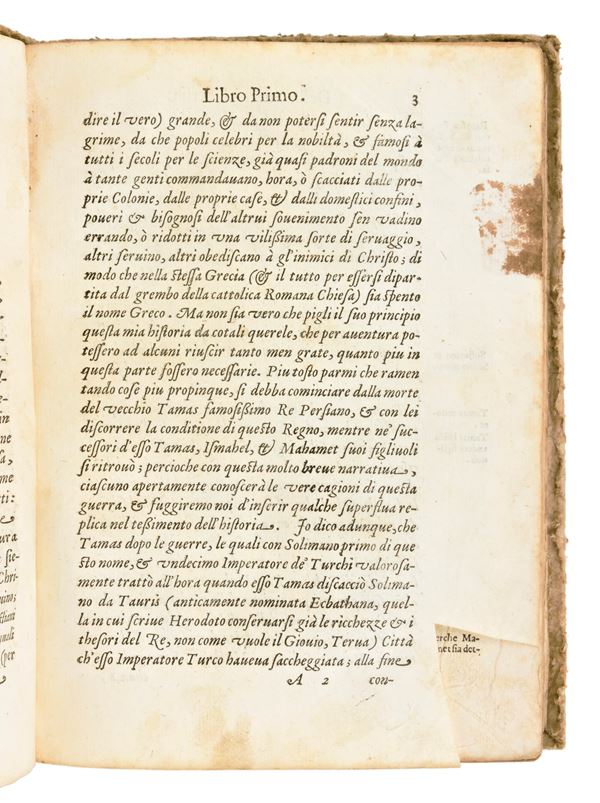 Libro Primo. 3
dire il vero) grande, & da non potersi sentir senza la-
grime, da che popoli celebri per la nobiltà, & famosi à
tutti i secoli per le scienze, già quasi padroni del mondo
à tante genti commandauano, hora, ò scacciati dalle pro-
prie Colonie, dalle proprie case, & dalli domestici confini,
poueri & bisognosi dell'altrui souenimento sen vadino
errando, ò ridotti in vna vilißima sorte di seruaggio,
altri seruino, altri obediscano à gl'inimici di Christo; di
modo che nella stessa Grecia (& il tutto per essersi dipar-
tita dal grembo della cattolica Romana Chiesa) sia spento
il nome Greco. Ma non sia vero che pigli il suo principio
questa mia historia da cotali querele, che per auentura po-
tessero ad alcuni riuscir tanto men grate, quanto piu in
questa parte fossero necessarie. Piu tosto parmi che ramen
tando cose piu propinque, si debba cominciare dalla morte
del vecchio Tamas famosißimo Re Persiano, & con lei
discorrere la conditione di questo Regno, mentre ne' suc-
cessori d'esso Tamas, Ismahel, & Mahamet suoi figliuoli
si ritrouò; percioche con questa molto breue narratiua,
ciascuno apertamente conoscerà le vere cagioni di questa
guerra, & fuggiremo noi d'inserir qualche superflua re-
plica nel teßimento dell'historia. Io dico adunque, che
Tamas dopo le guerre, le quali con Solimano primo di que
sto nome, & vndecimo Imperatore de' Turchi valorosa-
mente trattò all'hora quando esso Tamas discacciò Solima-
no da Tauris (anticamente nominata Ecbathana, quel-
la in cui scriue Herodoto conseruarsi già le ricchezze & i
thesori del Re, non come vuole il Giouio, Terua) Città
ch'esso Imperatore Turco haueua saccheggiata; alla fine
A 2 con-
erche Ma-
net sia det-